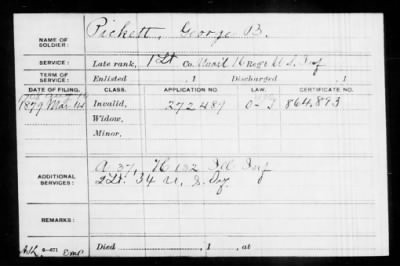 NAME OF SOLDIER: Pickett, George B.
SERVICE: Late rank, 1 Lt Co. 16 Reg't U.S. Inf
TERM OF SERVICE: Enlisted , 1 Discharged , 1
DATE OF FILING. CLASS. APPLICATION NO. LAW. CERTIFICATE NO.
1879 Mar Invalid, 272487 864,893
Widow,
Minor,
ADDITIONAL SERVICES: A 37, H 132 Ill Inf
2 Lt. 34 U.S. Inf
REMARKS:
Died , 1 , at